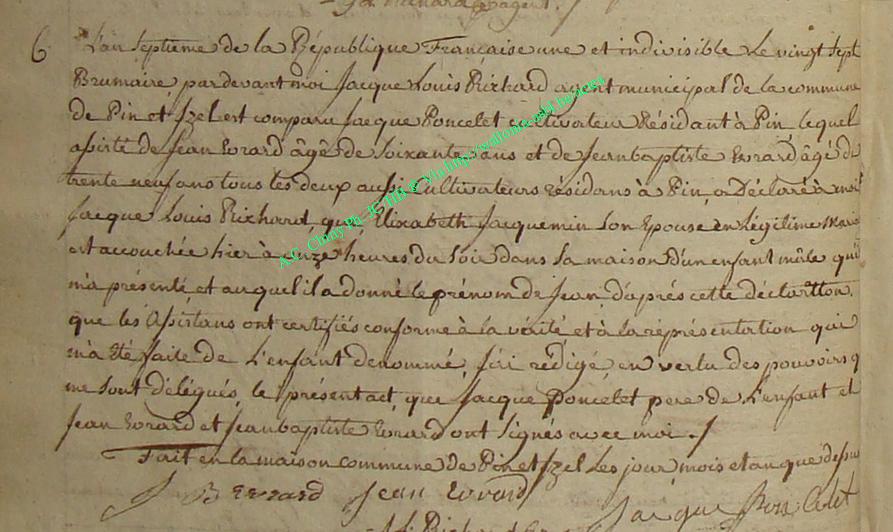 agent. /
6. L'an Septieme de la République Française une et indivisible Le vingt Sept
Brumaire, pardevant moi Jacque Louis Richard agent municipal de la commune
de Pin et Izel est comparu Jacque Poncelet cultivateur Résidant à Pin, lequel
assisté de Jean Evrard âgé de Soixante ans et de Jeanbaptiste Evrard, âgé de
trente neuf ans tous les deux aussi Cultivateurs résidans à Pin, a Déclaré à moi
Jacque Louis Richard que Elizabeth Jacquemin Son Epouse en Légitime
est accouchée hier à onze heures du Soir dans Sa maison d'un enfant mâle qu'il
m'a présenté, et auquel il a donné le prénom de Jean, d'après cette déclaration,
que les Assistans ont certifiés conforme à la vérité et à la réprésentation qui
m'a été faite de L'enfant denommé, j'ai rédigé, en vertu des pouvoirs q
me sont délégués, le présent act, que Jacque Poncelet pere de L'enfant et
Jean Evrard et Jeanbaptiste Evrard ont Signés avec moi. /
Fait en la maison commune de Pin et Izel Les jour mois et an que dessu
J B Evrard Jean Evrard Jacque Poncelet
A.C. Chiny Ph. JC HB & Via http://wallonica.org